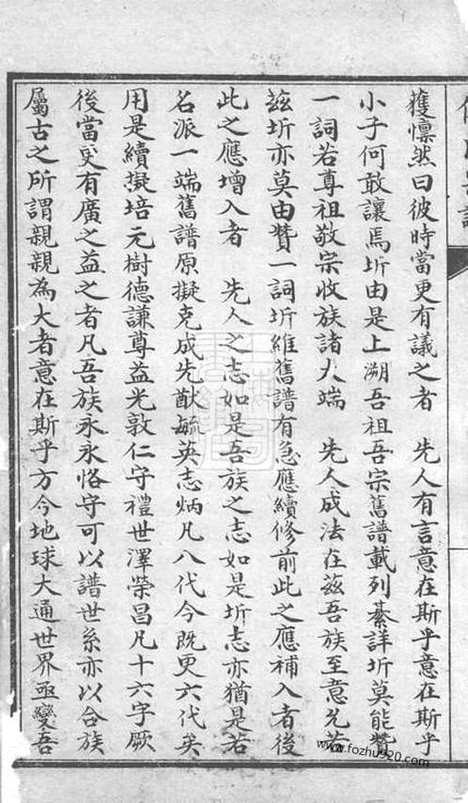 獲懍然曰彼時當更有議之者　先人有言意在斯乎意在斯乎
小子何敢讓焉圻由是上溯吾祖吾宗舊譜載列綦詳圻莫能贊
一詞若尊祖敬宗收族諸大端　先人成法在茲吾族至意允若
茲圻亦莫由贊一詞圻維舊譜有急應續修前此之應補入者後
此之應增入者　先人之志如是吾族之志如是圻志亦猶是若
名派一端舊譜原擬克成先猷毓英志炳凡八代今既更六代矣
用是續擬培元樹德謙尊益光敦仁守禮世澤榮昌凡十六字厥
後當更有廣之益之者凡吾族永永恪守可以譜世系亦以合族
屬古之所謂親親為大者意在斯乎方今地球大通世界亟變吾
www.fozhu920.com